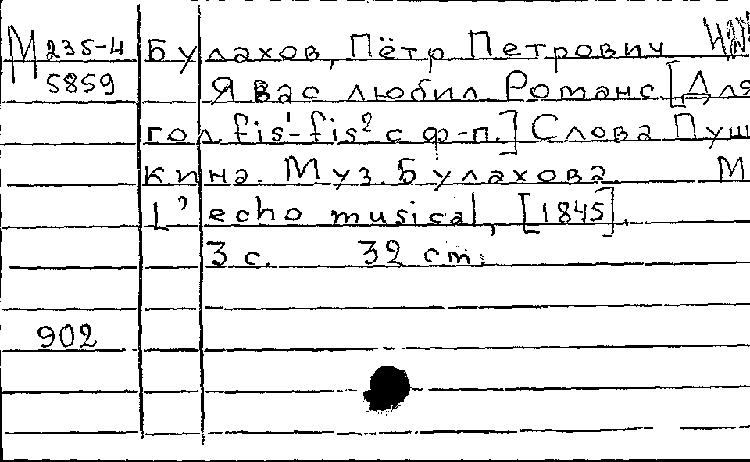 М 235-4 Булахов, Пётр Петрович
5859 Я вас любил. Романс. [Для
гол. fis¹-fis² с ф-п.] Слова Пуш
кина. Муз. Булахова. М
L'echo musical, [1845].
3 с. 32 cm.
902